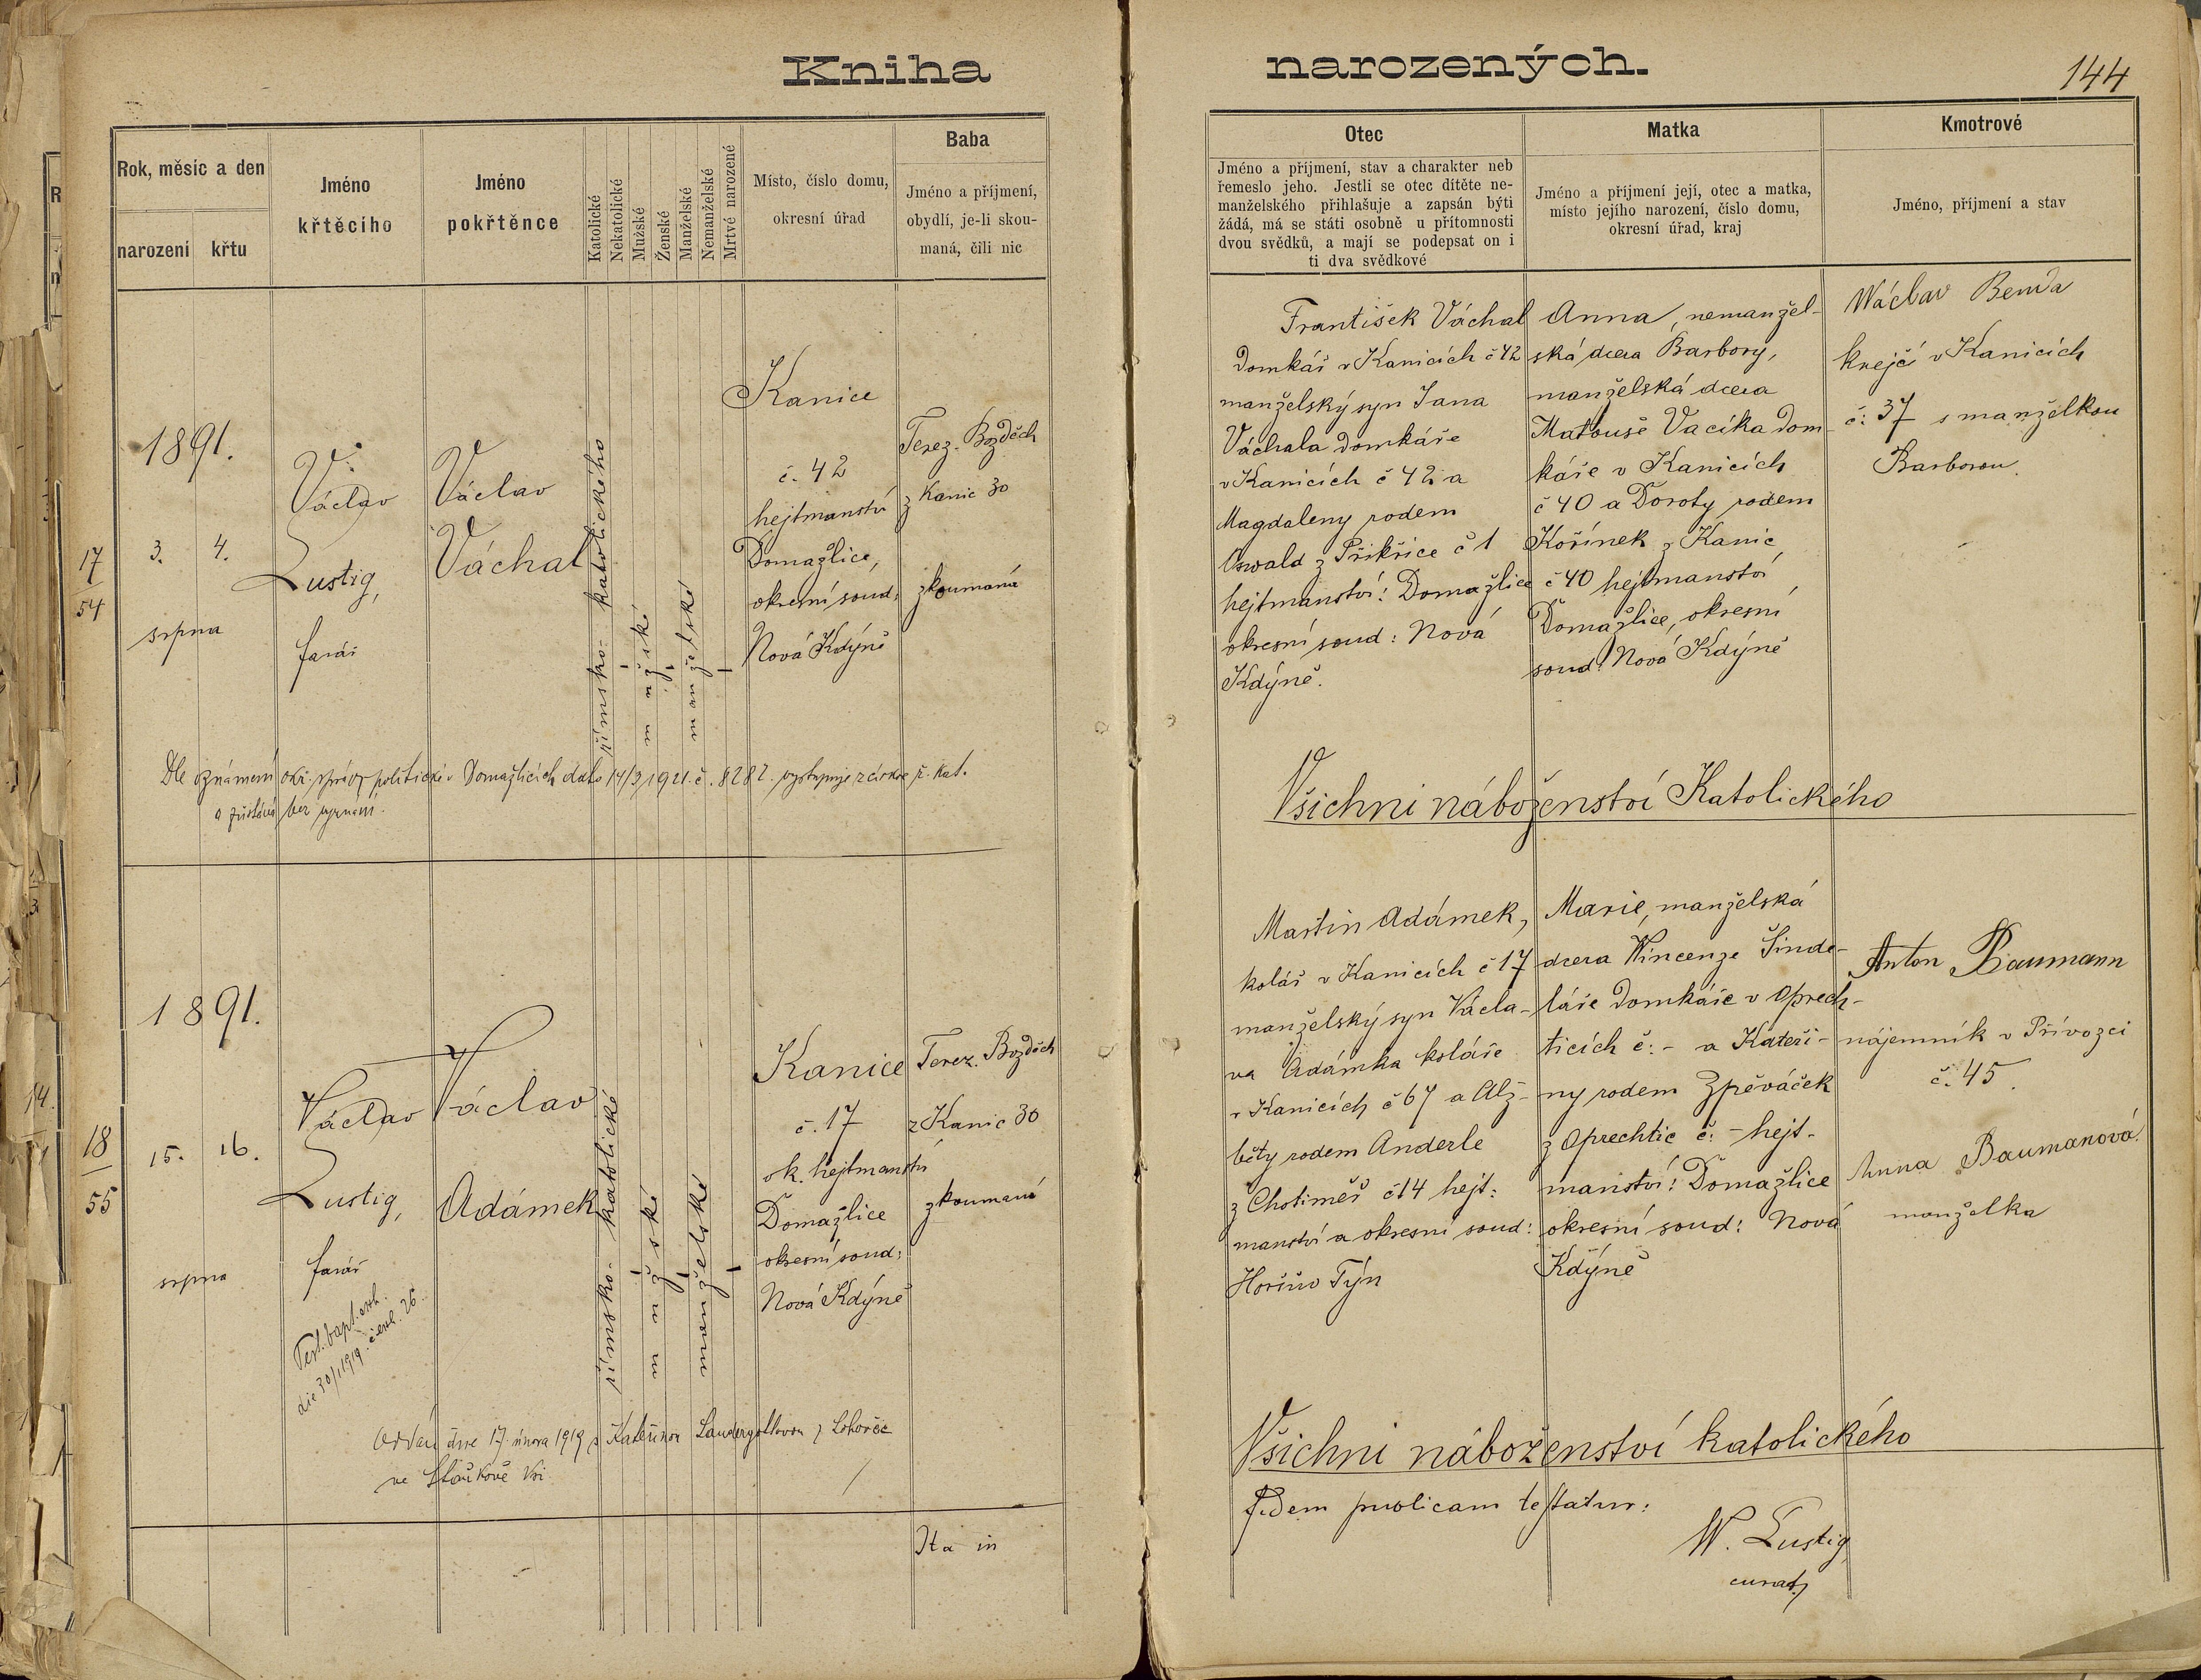 Kniha narozených.
144
Rok, měsíc a den
narození
křtu
Jméno
křtěcího
Jméno
pokřtěnce
Katolické
Nekatolické
Mužské
Ženské
Manželské
Nemanželské
Mrtvé narozené
Místo, číslo domu,
okresní úřad
Baba
Jméno a příjmení,
obydlí, je-li skou-
maná, čili nic
Otec
Jméno a příjmení, stav a charakter neb
řemeslo jeho. Jestli se otec dítěte ne-
manželského přihlašuje a zapsán býti
žádá, má se státi osobně u přítomnosti
dvou svědků, a mají se podepsat on i
ti dva svědkové
Matka
Jméno a příjmení její, otec a matka,
místo jejího narození, číslo domu,
okresní úřad, kraj
Kmotrové
Jméno, příjmení a stav
17
54
1891.
3. 4.
srpna
Václav
Lustig,
farář
Václav
Váchal
římsko- katolického
mužské
manželské
Kanice
č. 42
hejtmanství
Domažlice,
okresní soud:
Nová Kdýně
Terez. Bozděch
z Kanic 30
zkoumaná
František Váchal
domkář v Kanicích č 42
manželský syn Jana
Váchala domkáře
v Kanicích č 42 a
Magdaleny rodem
Oswald z Přikřice č 1
hejtmanství: Domažlice
okresní soud: Nová
Kdýně.
Anna, nemanžel-
ská dcera Barbory,
manželská dcera
Matouše Vacíka dom-
káře v Kanicích
č 40 a Doroty rodem
Kořínek z Kanic
č 40 hejtmanství
Domažlice, okresní
soud: Nová Kdýně
Wáclav Benda
krejčí v Kanicích
č: 37 s manželkou
Barborou.
Dle oznámení okr. správy politické v Domažlicích dato 14/3 1921. č. 8282. vystupuje z církve ř. kat.
a zůstává bez vyznání.
Všichni náboženství Katolického
18
55
1891.
15. 16.
srpna
Václav
Lustig,
farář
Václav
Adámek
římsko- katolické
mužské
manželské
Kanice
č. 17
ok. hejtmanství
Domažlice
okresní soud:
Nová Kdýně
Terez. Bozděch
z Kanic 30
zkoumaná
Martin Adámek,
kolář v Kanicích č 17
manželský syn Václa-
va Adámka koláře
v Kanicích č 67 a Alž-
běty rodem Anderle
z Chotiměř č 14 hejt:
manství a okresní soud:
Horšův Týn
Marie, manželská
dcera Wincenze Šinde-
láře domkáře v Oprech-
ticích č: - a Kateři-
ny rodem Zpěváček
z Oprechtic č: - hejt-
manství: Domažlice
okresní soud: Nová
Kdýně
Anton Baumann
nájemník v Přívozci
č. 45.
Anna Baumanová
manželka
Test. bapt. exh.
die 30/1 1919. č. exh. 26.
Oddán dne 17. února 1919 s Kateřinou z Lohovčic
ve Kově Vsi.
Všichni náboženství katolického
Ita in
fidem publicam testatur:
W. Lustig,
curat.